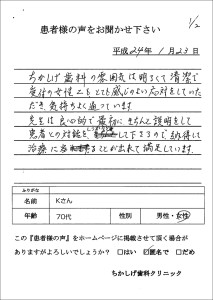 1/2
患者様の声をお聞かせ下さい
平成24年1月23日
ちかしげ歯科の雰囲気は明るくて清潔で
受付の女性こもとても感じのよい応対をしていた
だき気持ちよく通っています
先生は良心的で最初にきちんと説明をして
患者との対話を して下さるので納得して
治療に 事が出来て満足しています。
ふりがな
名前 Kさん
年齢 70代 性別 男性・女性
この『患者様の声』をホームページに掲載させて頂く場合が
ありますがよろしいでしょうか? □はい ☑匿名で □だめ
ちかしげ歯科クリニック